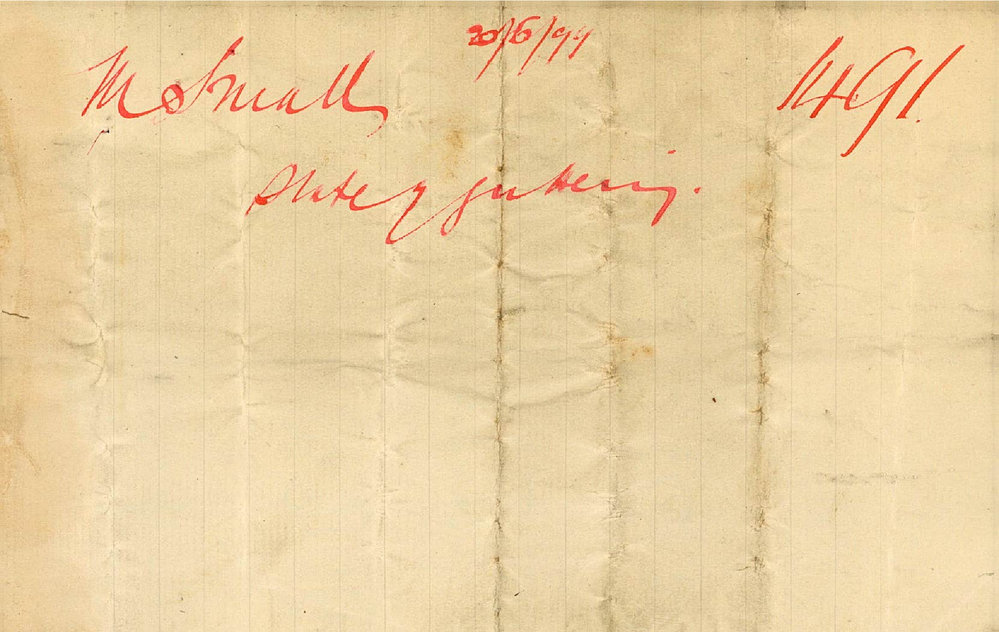 20/6/99
M Small 1491.
State of guttering.